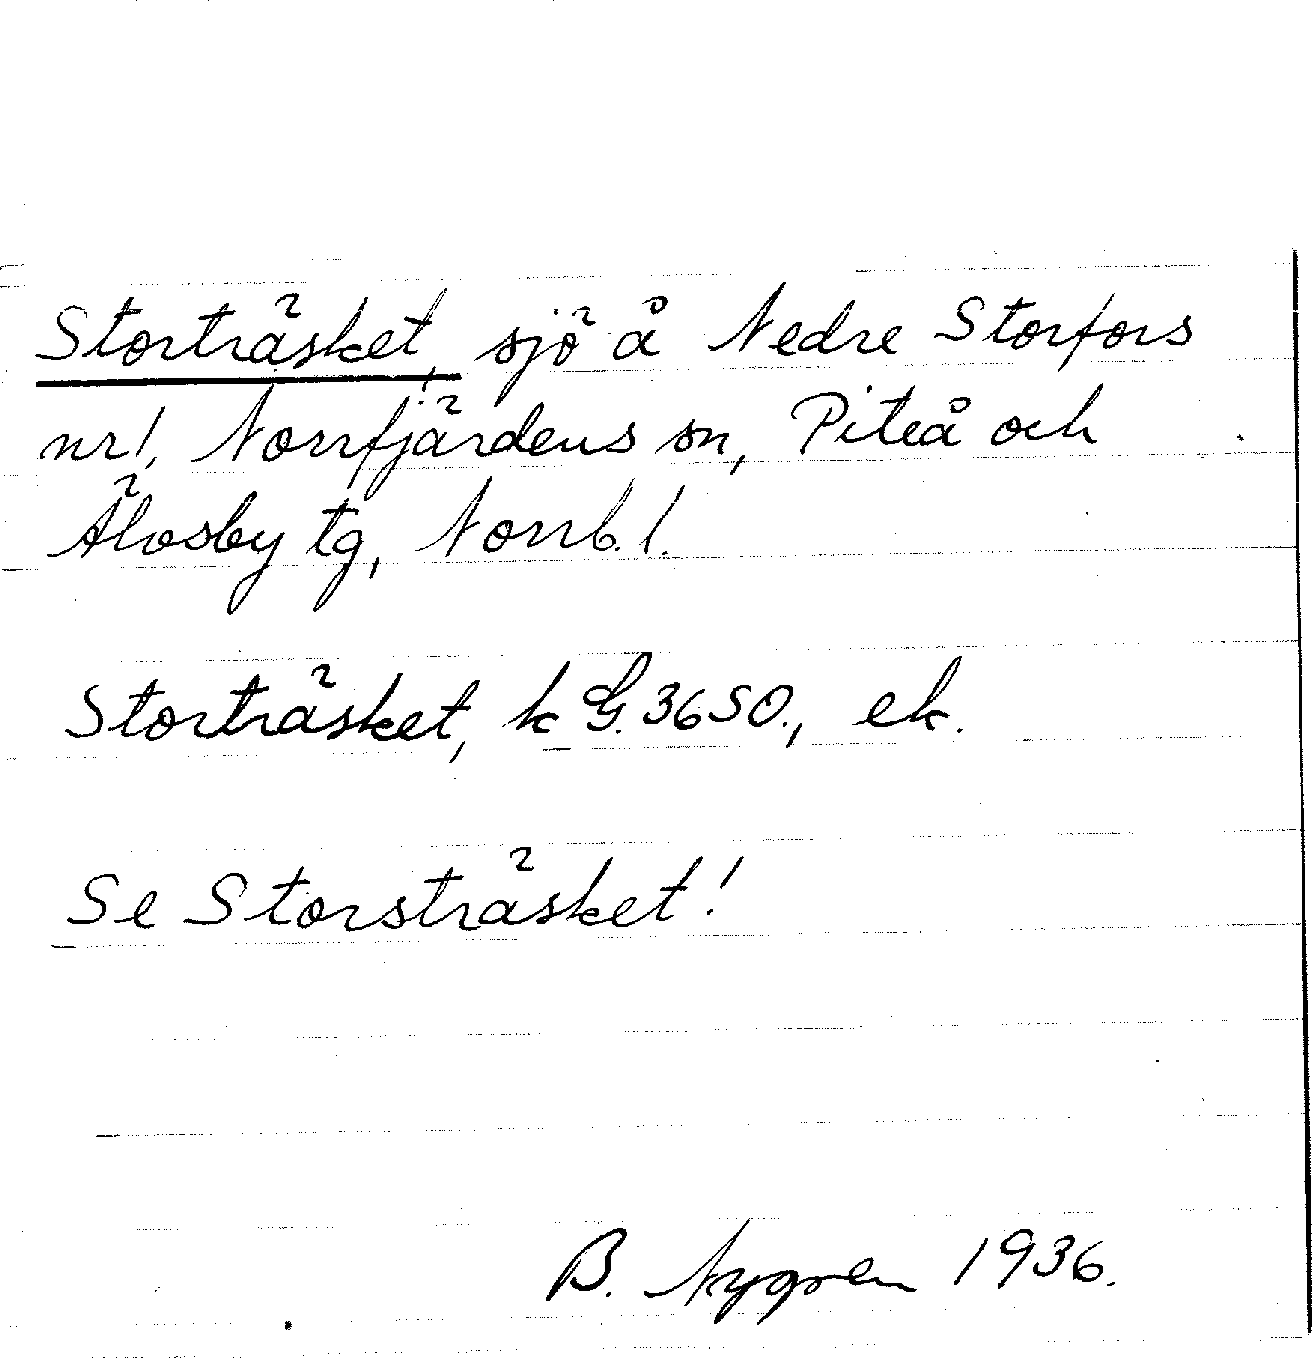 Storträsket, sjö å Nedre Storfors
nr 1, Norrfjärdens sn, Piteå och
Älvsby tg, Norrb. l.
Storträsket, k G. 3650., ek.
Se Storsträsket!
B. Nygren 1936.